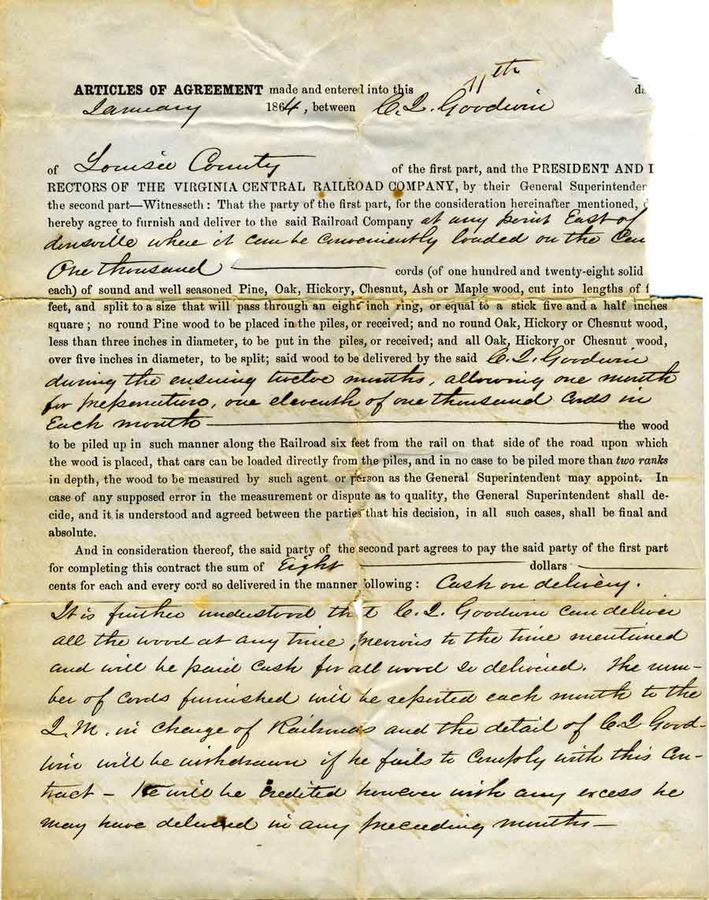 ARTICLES OF AGREEMENT made and entered into this 11th da
January 1864, between C. Q. Goodwin
of Louisa County of the first part, and the PRESIDENT AND
RECTORS OF THE VIRGINIA CENTRAL RAILROAD COMPANY, by their General Superintenden
the second part—Witnesseth: That the party of the first part, for the consideration hereinafter mentioned,
hereby agree to furnish and deliver to the said Railroad Company at any point East of
donsville where it can be conveniently loaded on the
One thousand cords (of one hundred and twenty-eight solid
each) of sound and well seasoned Pine, Oak, Hickory, Chesnut, Ash or Maple wood, cut into lengths of
feet, and split to a size that will pass through an eight inch ring, or equal to a stick five and a half inches
square; no round Pine wood to be placed in the piles, or received; and no round Oak, Hickory or Chesnut wood,
less than three inches in diameter, to be put in the piles, or received; and all Oak, Hickory or Chesnut wood,
over five inches in diameter, to be split; said wood to be delivered by the said C. Q. Goodwin
during the ensuing twelve months, allowing one month
for preparation, one eleventh of one thousand Cords in
Each month — the wood
to be piled up in such manner along the Railroad six feet from the rail on that side of the road upon which
the wood is placed, that cars can be loaded directly from the piles, and in no case to be piled more than two ranks
in depth, the wood to be measured by such agent or person as the General Superintendent may appoint. In
case of any supposed error in the measurement or dispute as to quality, the General Superintendent shall de-
cide, and it is understood and agreed between the parties that his decision, in all such cases, shall be final and
absolute.
And in consideration thereof, the said party of the second part agrees to pay the said party of the first part
for completing this contract the sum of Eight — dollars —
cents for each and every cord so delivered in the manner following: Cash on delivery.
It is further understood that C. Q. Goodwin can deliver
all the wood at any time previous to the time mentioned
and will be paid Cash for all wood so delivered. The num-
ber of Cords furnished will be reported each month to the
Q. M. in charge of Railroads and the detail of C. Q Good-
win will be withdrawn if he fails to comply with this Con-
tract – He will be credited however with any excess he
may have delivered in any preceeding months —